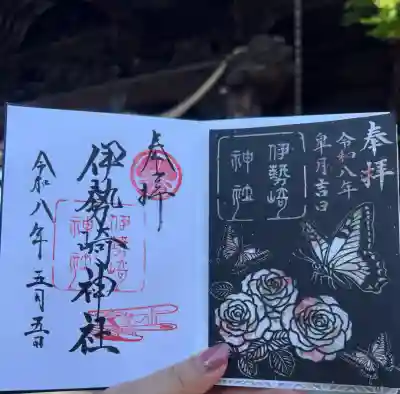 奉拝
伊勢崎神社
伊勢崎
神社
令和八年 五月五日
奉拝
令和八年
皐月吉日
伊勢崎
神社